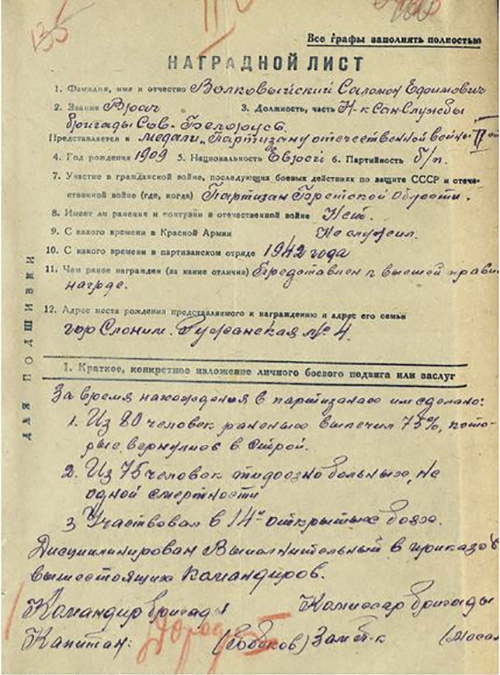 135
Все графы заполнять полностью
НАГРАДНОЙ ЛИСТ
1. Фамилия, имя и отчество Волковыйский Саломон Ефимович
2. Звание Врач 3. Должность, часть Н-к Сан-Службы
бригады Сов-Белорусс.
Представляется к медали „Партизану отечественной войны II
4. Год рождения 1909 5. Национальность Еврей 6. Партийность б/п.
7. Участие в гражданской войне, последующих боевых действиях по защите СССР и отече-
ственной войне (где, когда) Партизан Брестской Области.
8. Имеет ли ранения и контузии в отечественной войне Нет.
9. С какого времени в Красной Армии Не служил.
10. С какого времени в партизанском отряде 1942 года
11. Чем ранее награжден (за какие отличия) Представлен к высшей прави
награде.
12. Адрес места рождения представляемого к награждению и адрес его семьи
гор Слоним. Ружанская № 4.
ДЛЯ ПОДШИВКИ
1. Краткое, конкретное изложение личного боевого подвига или заслуг
За время нахождения в партизанах им сделано:
1. Из 80 человек раненых вылечил 75%, кото-
рые вернулись в строй.
2. Из 75 человек тифозно больных, не
одной смертности
3 Участвовал в 14 открытых боях.
Дисциплинирован Выполнительный в приказов
вышестоящих командиров.
Командир бригады Комиссар бригады
Капитан: (Бобков) Зам